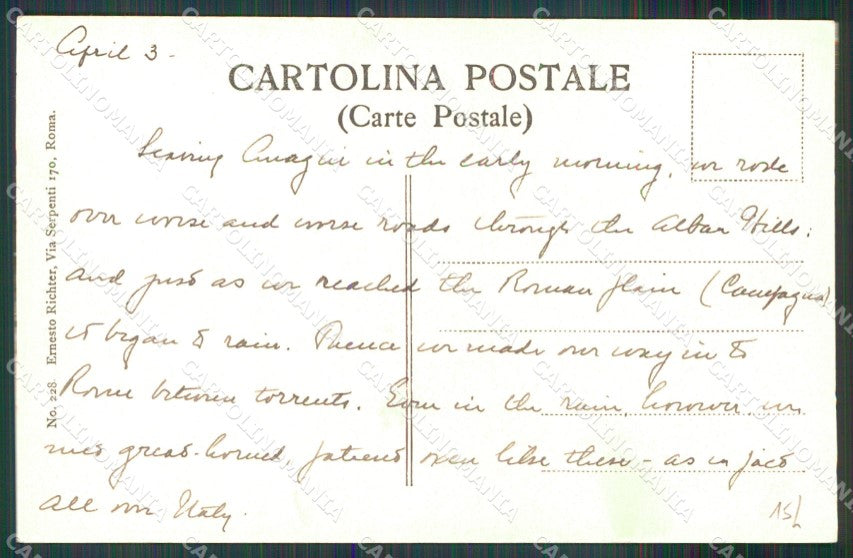 April 3 -
CARTOLINA POSTALE
(Carte Postale)
Leaving Anagni in the early morning, we rode
over worse and worse roads through the Alban Hills;
and just as we reached the Roman plain (Campagna)
it began to rain. Thence we made our way in to
Rome between torrents. Even in the rain, however, we
met great-horned, patient oxen like these - as in fact
all over Italy.
No. 228. Ernesto Richter, Via Serpenti 170, Roma.
CARTOLINOMANIA